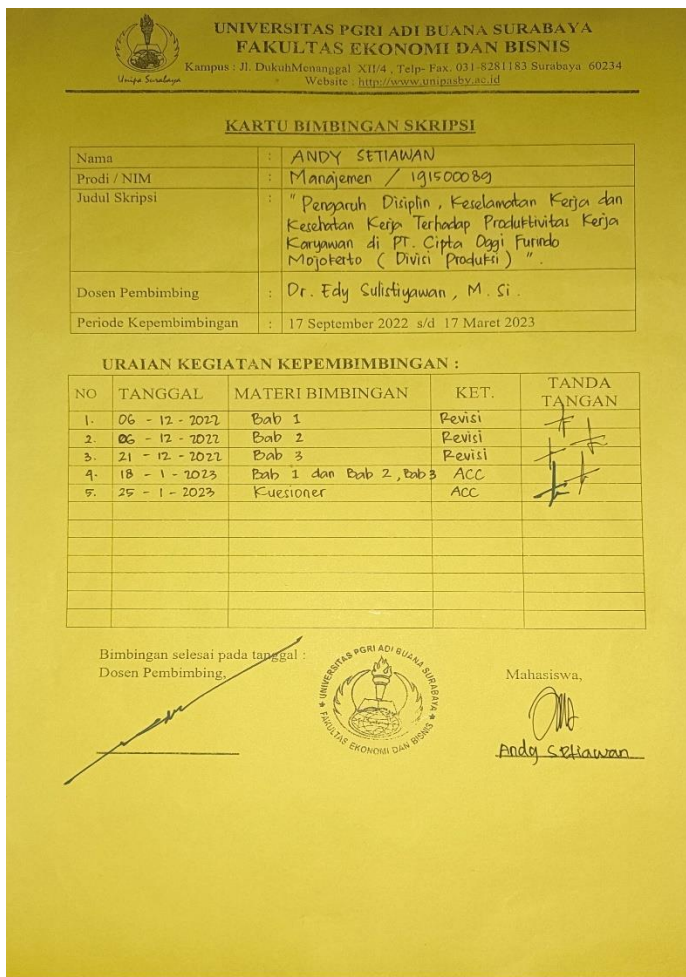 UNIVERSITAS PGRI ADI BUANA SURABAYA
FAKULTAS EKONOMI DAN BISNIS
Kampus : Jl. DukuhMenanggal XII/4 , Telp- Fax. 031-8281183 Surabaya 60234
Website : http://www.unipasby.ac.id
Unipa Surabaya
KARTU BIMBINGAN SKRIPSI
Nama : ANDY SETIAWAN
Prodi / NIM : Manajemen / 191500089
Judul Skripsi : " Pengaruh Disiplin , Keselamatan Kerja dan
Kesehatan Kerja Terhadap Produktivitas Kerja
Karyawan di PT. Cipta Oggi Furindo
Mojokerto ( Divisi Produksi ) " .
Dosen Pembimbing : Dr. Edy Sulistiyawan , M. Si .
Periode Kepembimbingan : 17 September 2022 s/d 17 Maret 2023
URAIAN KEGIATAN KEPEMBIMBINGAN :
NO TANGGAL MATERI BIMBINGAN KET. TANDA
TANGAN
1. 06 - 12 - 2022 Bab 1 Revisi
2. 06 - 12 - 2022 Bab 2 Revisi
3. 21 - 12 - 2022 Bab 3 Revisi
4. 18 - 1 - 2023 Bab 1 dan Bab 2 , Bab 3 ACC
5. 25 - 1 - 2023 Kuesioner ACC
Bimbingan selesai pada tanggal :
Dosen Pembimbing,
UNIVERSITAS PGRI ADI BUANA SURABAYA
FAKULTAS EKONOMI DAN BISNIS
Mahasiswa,
Andy Setiawan